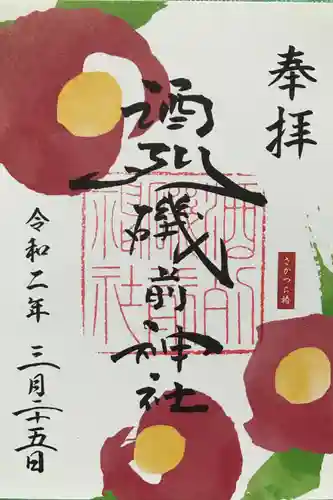 奉拝
酒列磯前神社
さかつら椿
令和二年 三月二十五日